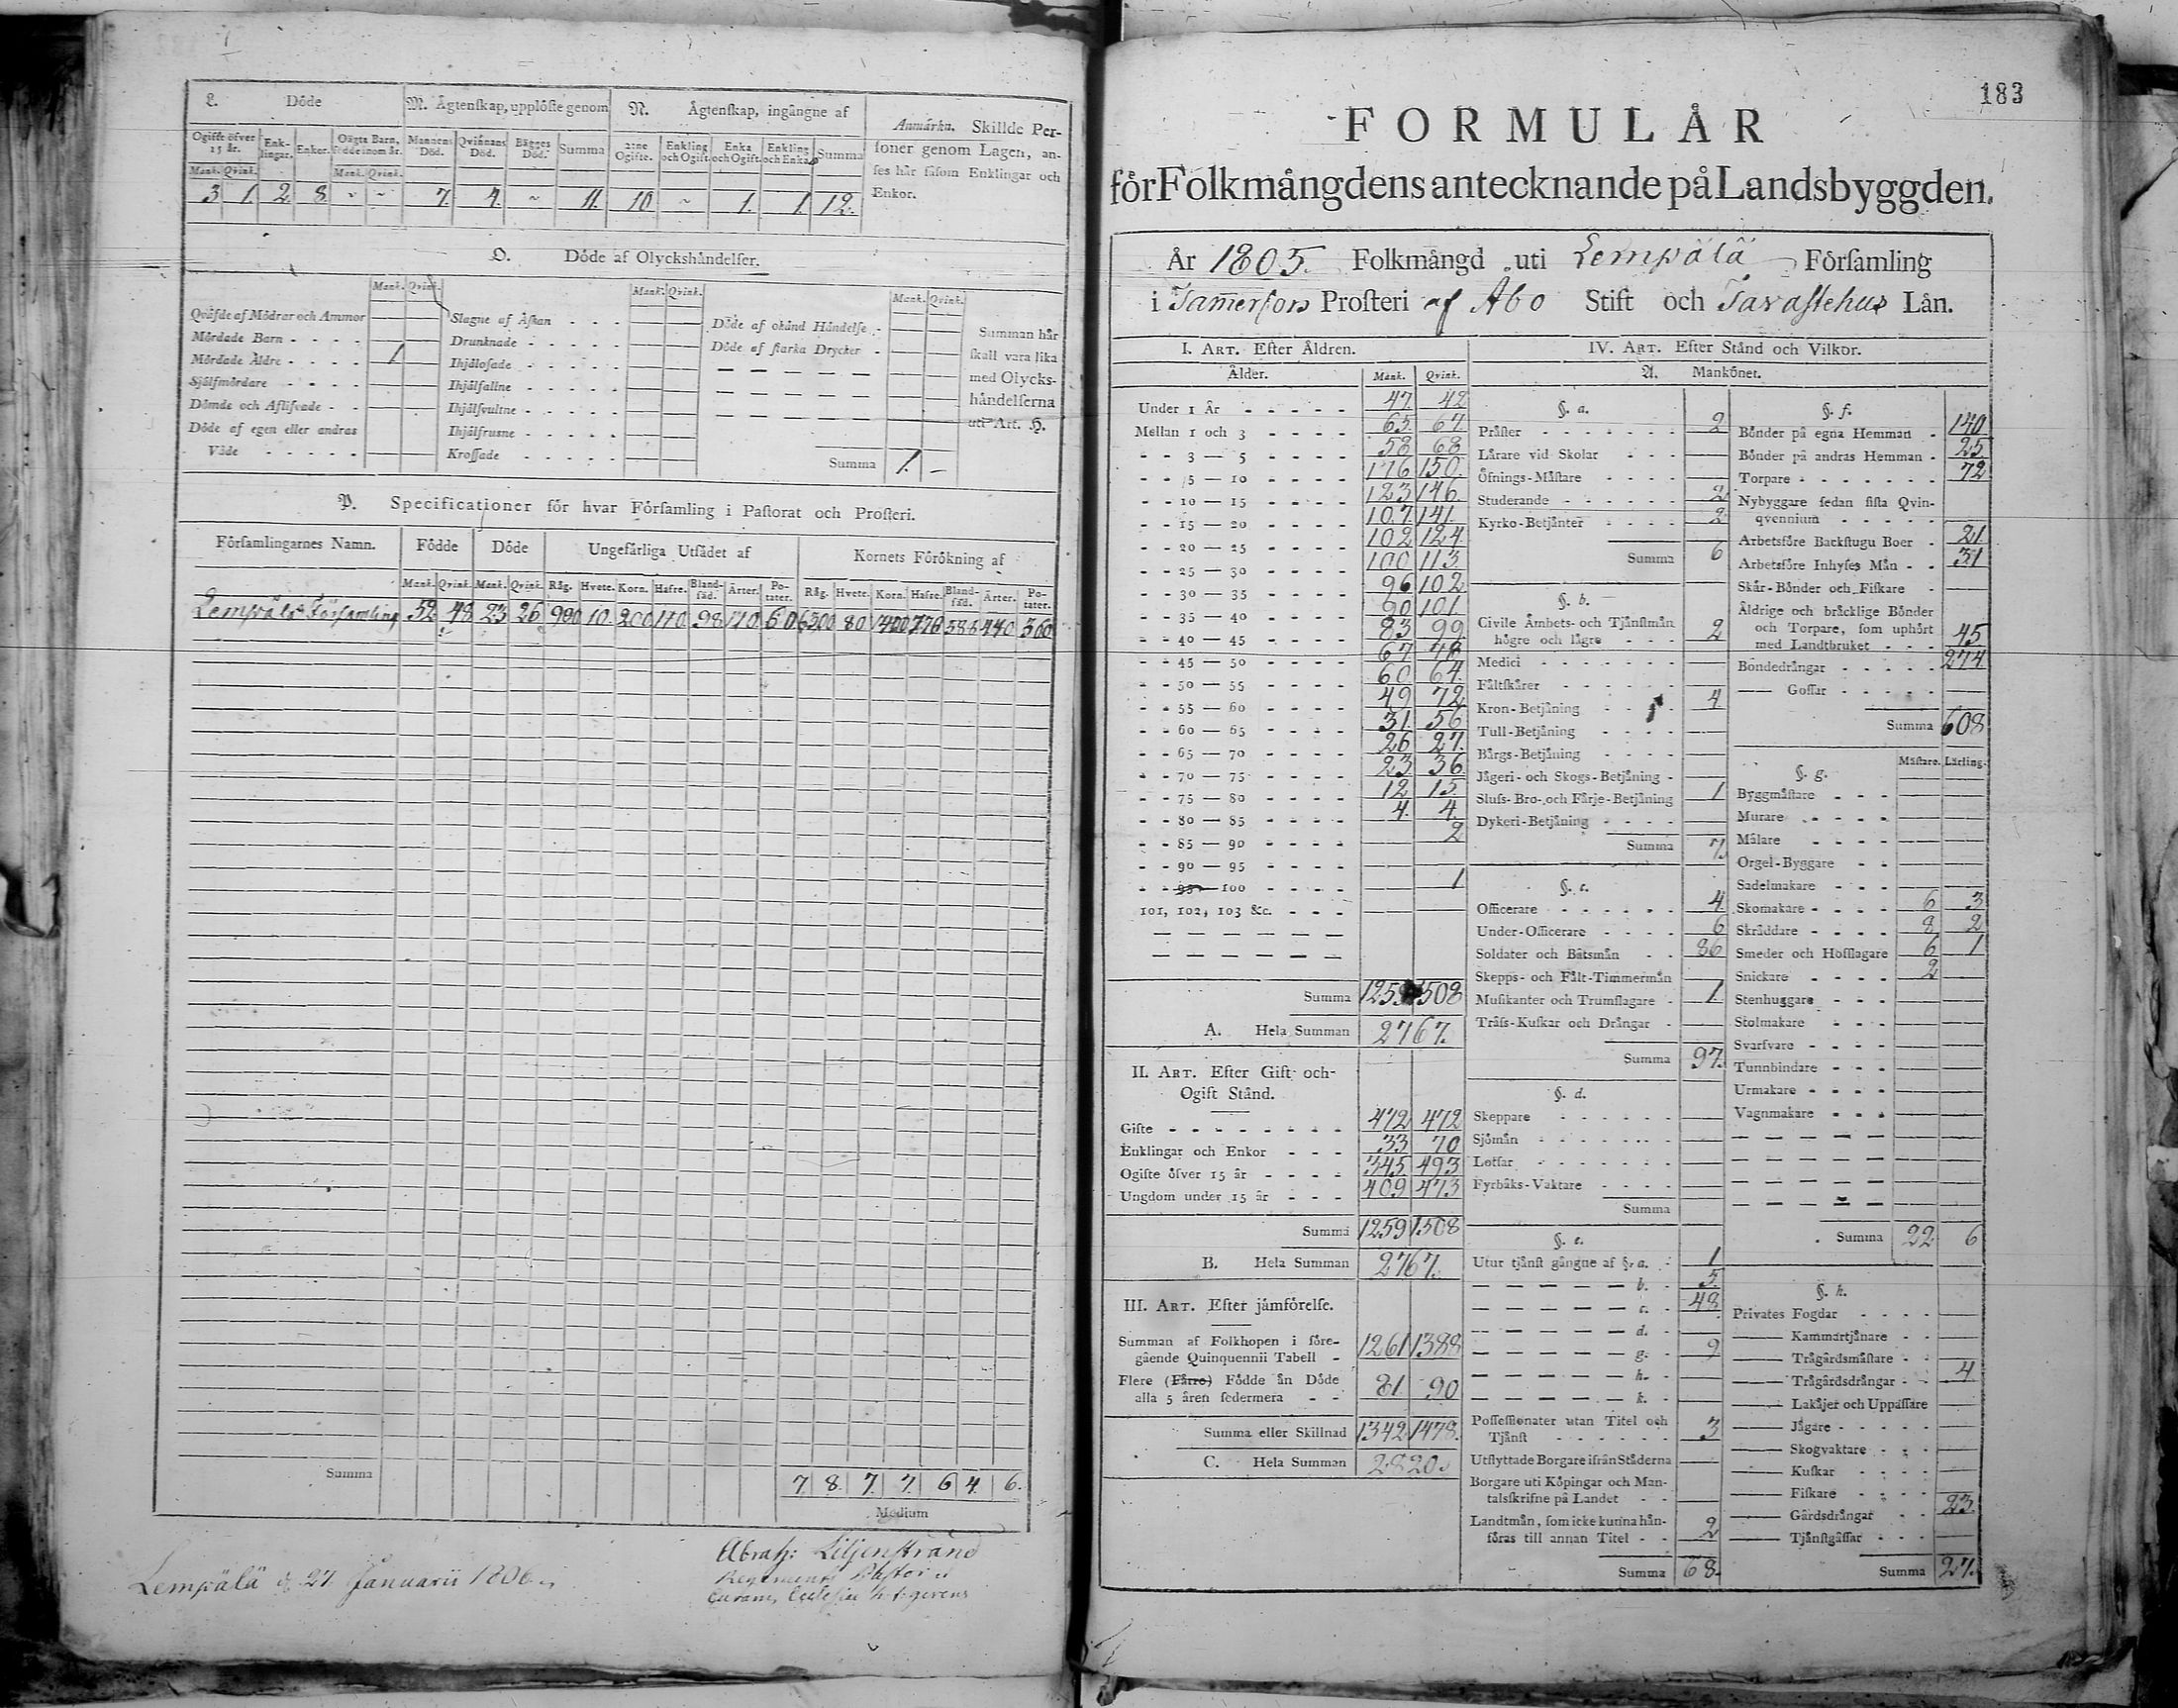 L. Döde
M. Ägtenskap, upplöste genom
N. Ägtenskap, ingångne af
Anmärkn. Skillde Per-
soner genom Lagen, an-
ses här såsom Enklingar och
Enkor.
Ogifte öfver 15 år. Enk-lingar. Enkor. Oägta Barn, födde inom år. Mannens Död. Qvinnans Död. Bägges Död. Summa Ogifte. Enkling och Ogift. Enka och Ogift. Enkling och Enka. Summa
Mank. Qvink. Mank. Qvink.
3 1. 2 8. ~ ~ 7. 4. ~ 11. 10 ~ 1. 1. 12.
O. Döde af Olyckshändelser.
Mank. Qvink. Mank. Qvink. Mank. Qvink.
Qväfde af Mödrar och Ammor
Mördade Barn
Mördade Äldre 1
Självmördare
Dömde och Aflifvade
Döde af egen eller andras
Våde
Slagne af Åskan
Drunknade
Ihjälosade
Ihjälfallne
Ihjälsvultne
Ihjälfrusne
Krossade
Döde af okänd Händelse
Döde af starka Drycker
Summa 1. –
Summan här
skall vara lika
med Olycks-
händelserna
uti Art. H.
P. Specificationer för hvar Församling i Pastorat och Prosteri.
Församlingarnes Namn. Födde Döde Ungefärliga Utsädet af Kornets Förökning af
Mank. Qvink. Mank. Qvink. Råg. Hvete. Korn. Hafre. Bland-säd. Ärter. Po-tater. Råg. Hvete. Korn. Hafre. Bland-säd. Ärter. Po-tater.
Lempälä Församling 52. 48 23 26 990 10. 200 110. 98 110. 60 6300 80 1400 770 588 440 360
Summa 7. 8. 7. 7. 6 4. 6.
Medium
Lempälä d. 27 Januarii 1806.
Abrah: Liljenstrand
Regements Pastor
183
FORMULÄR
för Folkmängdens antecknande på Landsbyggden.
År 1805. Folkmängd uti Lempälä Församling
i Tammerfors Prosteri af Åbo Stift och Tavastehus Län.
I. Art. Efter Åldren.
Ålder. Mank. Qvink.
Under 1 År 47. 42
Mellan 1 och 3 65. 67.
3 — 5 58 68
5 — 10 116 150.
10 — 15 123 146.
15 — 20 107. 141.
20 — 25 102 124.
25 — 30 100 113.
30 — 35 96 102
35 — 40 90 101.
40 — 45 83 99
45 — 50 67
50 — 55 60 64.
55 — 60 49 72
60 — 65 31. 56
65 — 70 26 27.
70 — 75 23. 36.
75 — 80 12 15.
80 — 85 4. 4.
85 — 90 2
90 — 95
95 — 100 1
101, 102, 103 &c.
Summa 1259 1508
A. Hela Summan 2767.
II. Art. Efter Gift och
Ogift Stånd.
Gifte 472 472
Enklingar och Enkor 33 70
Ogifte öfver 15 år 345 493
Ungdom under 15 år 409 473
Summa 1259 1508
B. Hela Summan 2767.
III. Art. Efter jämförelse.
Summan af Folkhopen i före-
gående Quinquennii Tabell 1261 1388
Flere (Färre) Födde än Döde
alla 5 åren sedermera 81. 90
Summa eller Skillnad 1342 1478.
C. Hela Summan 2820.
IV. Art. Efter Stånd och Vilkor.
A. Mankönet.
§. a.
Präster 2
Lärare vid Skolar
Öfnings-Mästare
Studerande 2
Kyrko-Betjänter 2
Summa 6
§. b.
Civile Ämbets- och Tjänstmän
högre och lägre 2
Medici
Fältskärer
Kron-Betjäning 4
Tull-Betjäning
Bärgs-Betjäning
Jägeri- och Skogs-Betjäning
Sluss- Bro- och Färje-Betjäning 1
Dykeri-Betjäning
Summa 7.
§. c.
Officerare 4
Under-Officerare 6
Soldater och Båtsmän 86
Skepps- och Fält-Timmermän
Musikanter och Trumslagare 1.
Träss-Kuskar och Drängar
Summa 97.
§. d.
Skeppare
Sjömän
Lotsar
Fyrbåks-Vaktare
Summa
§. e.
Utur tjänst gångne af §. a. 1
b. 5.
c. 48
d.
g. 9
h.
k.
Possessionater utan Titel och
Tjänst 3
Utflyttade Borgare ifrån Städerna
Borgare uti Köpingar och Man-
talsskrifne på Landet
Landtmän, som icke kunna hän-
föras till annan Titel 2
Summa 68.
§. f.
Bönder på egna Hemman 140
Bönder på andras Hemman 25
Torpare 72
Nybyggare sedan sista Qvin-
qvennium
Arbetsföre Backstugu Boer 21
Arbetsföre Inhyses Män 31
Skär-Bönder och Fiskare
Äldrige och bräcklige Bönder
och Torpare, som uphört
med Landtbruket 45
Bondedrängar 274
—— Gossar
Summa 608
§. g. Mästare. Lärling.
Byggmästare
Murare
Målare
Orgel-Byggare
Sadelmakare
Skomakare 6 3
Skräddare 8 2
Smeder och Hofslagare 6 1
Snickare 2
Stenhuggare
Stolmakare
Svarfvare
Tunnbindare
Urmakare
Vagnmakare
Summa 22 6
§. h.
Privates Fogdar
—— Kammartjänare
—— Trägårdsmästare
—— Trägårdsdrängar 4
—— Lakäjer och Uppassare
—— Jägare
—— Skogvaktare
—— Kuskar
—— Fiskare
—— Gårdsdrängar 23.
—— Tjänstgåssar
Summa 27.